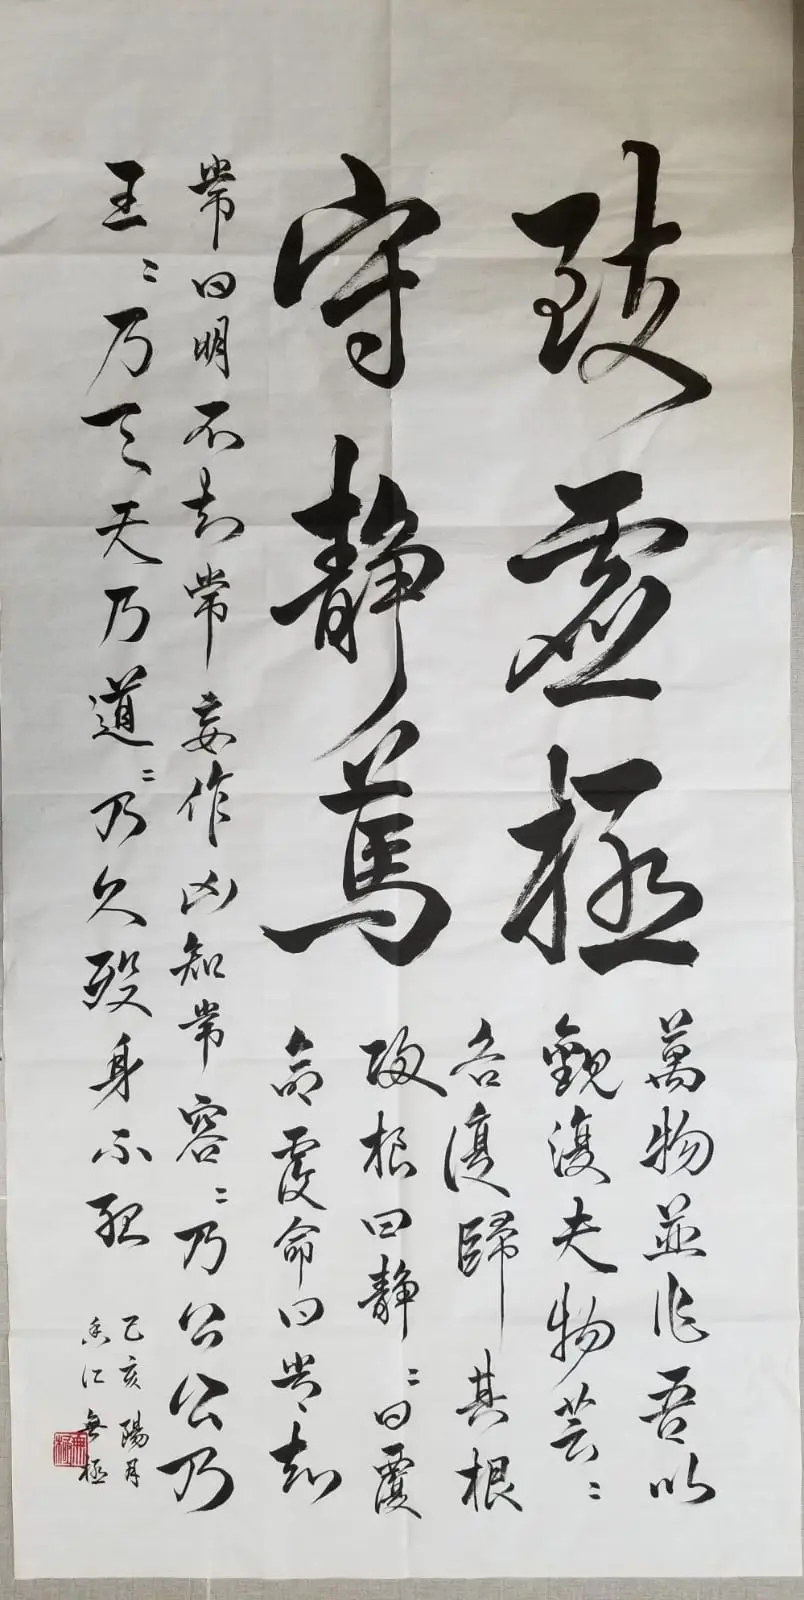 致虛極
守静篤
萬物並作吾以
觀復夫物芸〻
各復歸其根
歸根曰静〻曰復
命復命曰常知
常曰明不知常妄作凶知常容〻乃公公乃
王〻乃天天乃道〻乃久歿身不殆
己亥陽月
香江無極